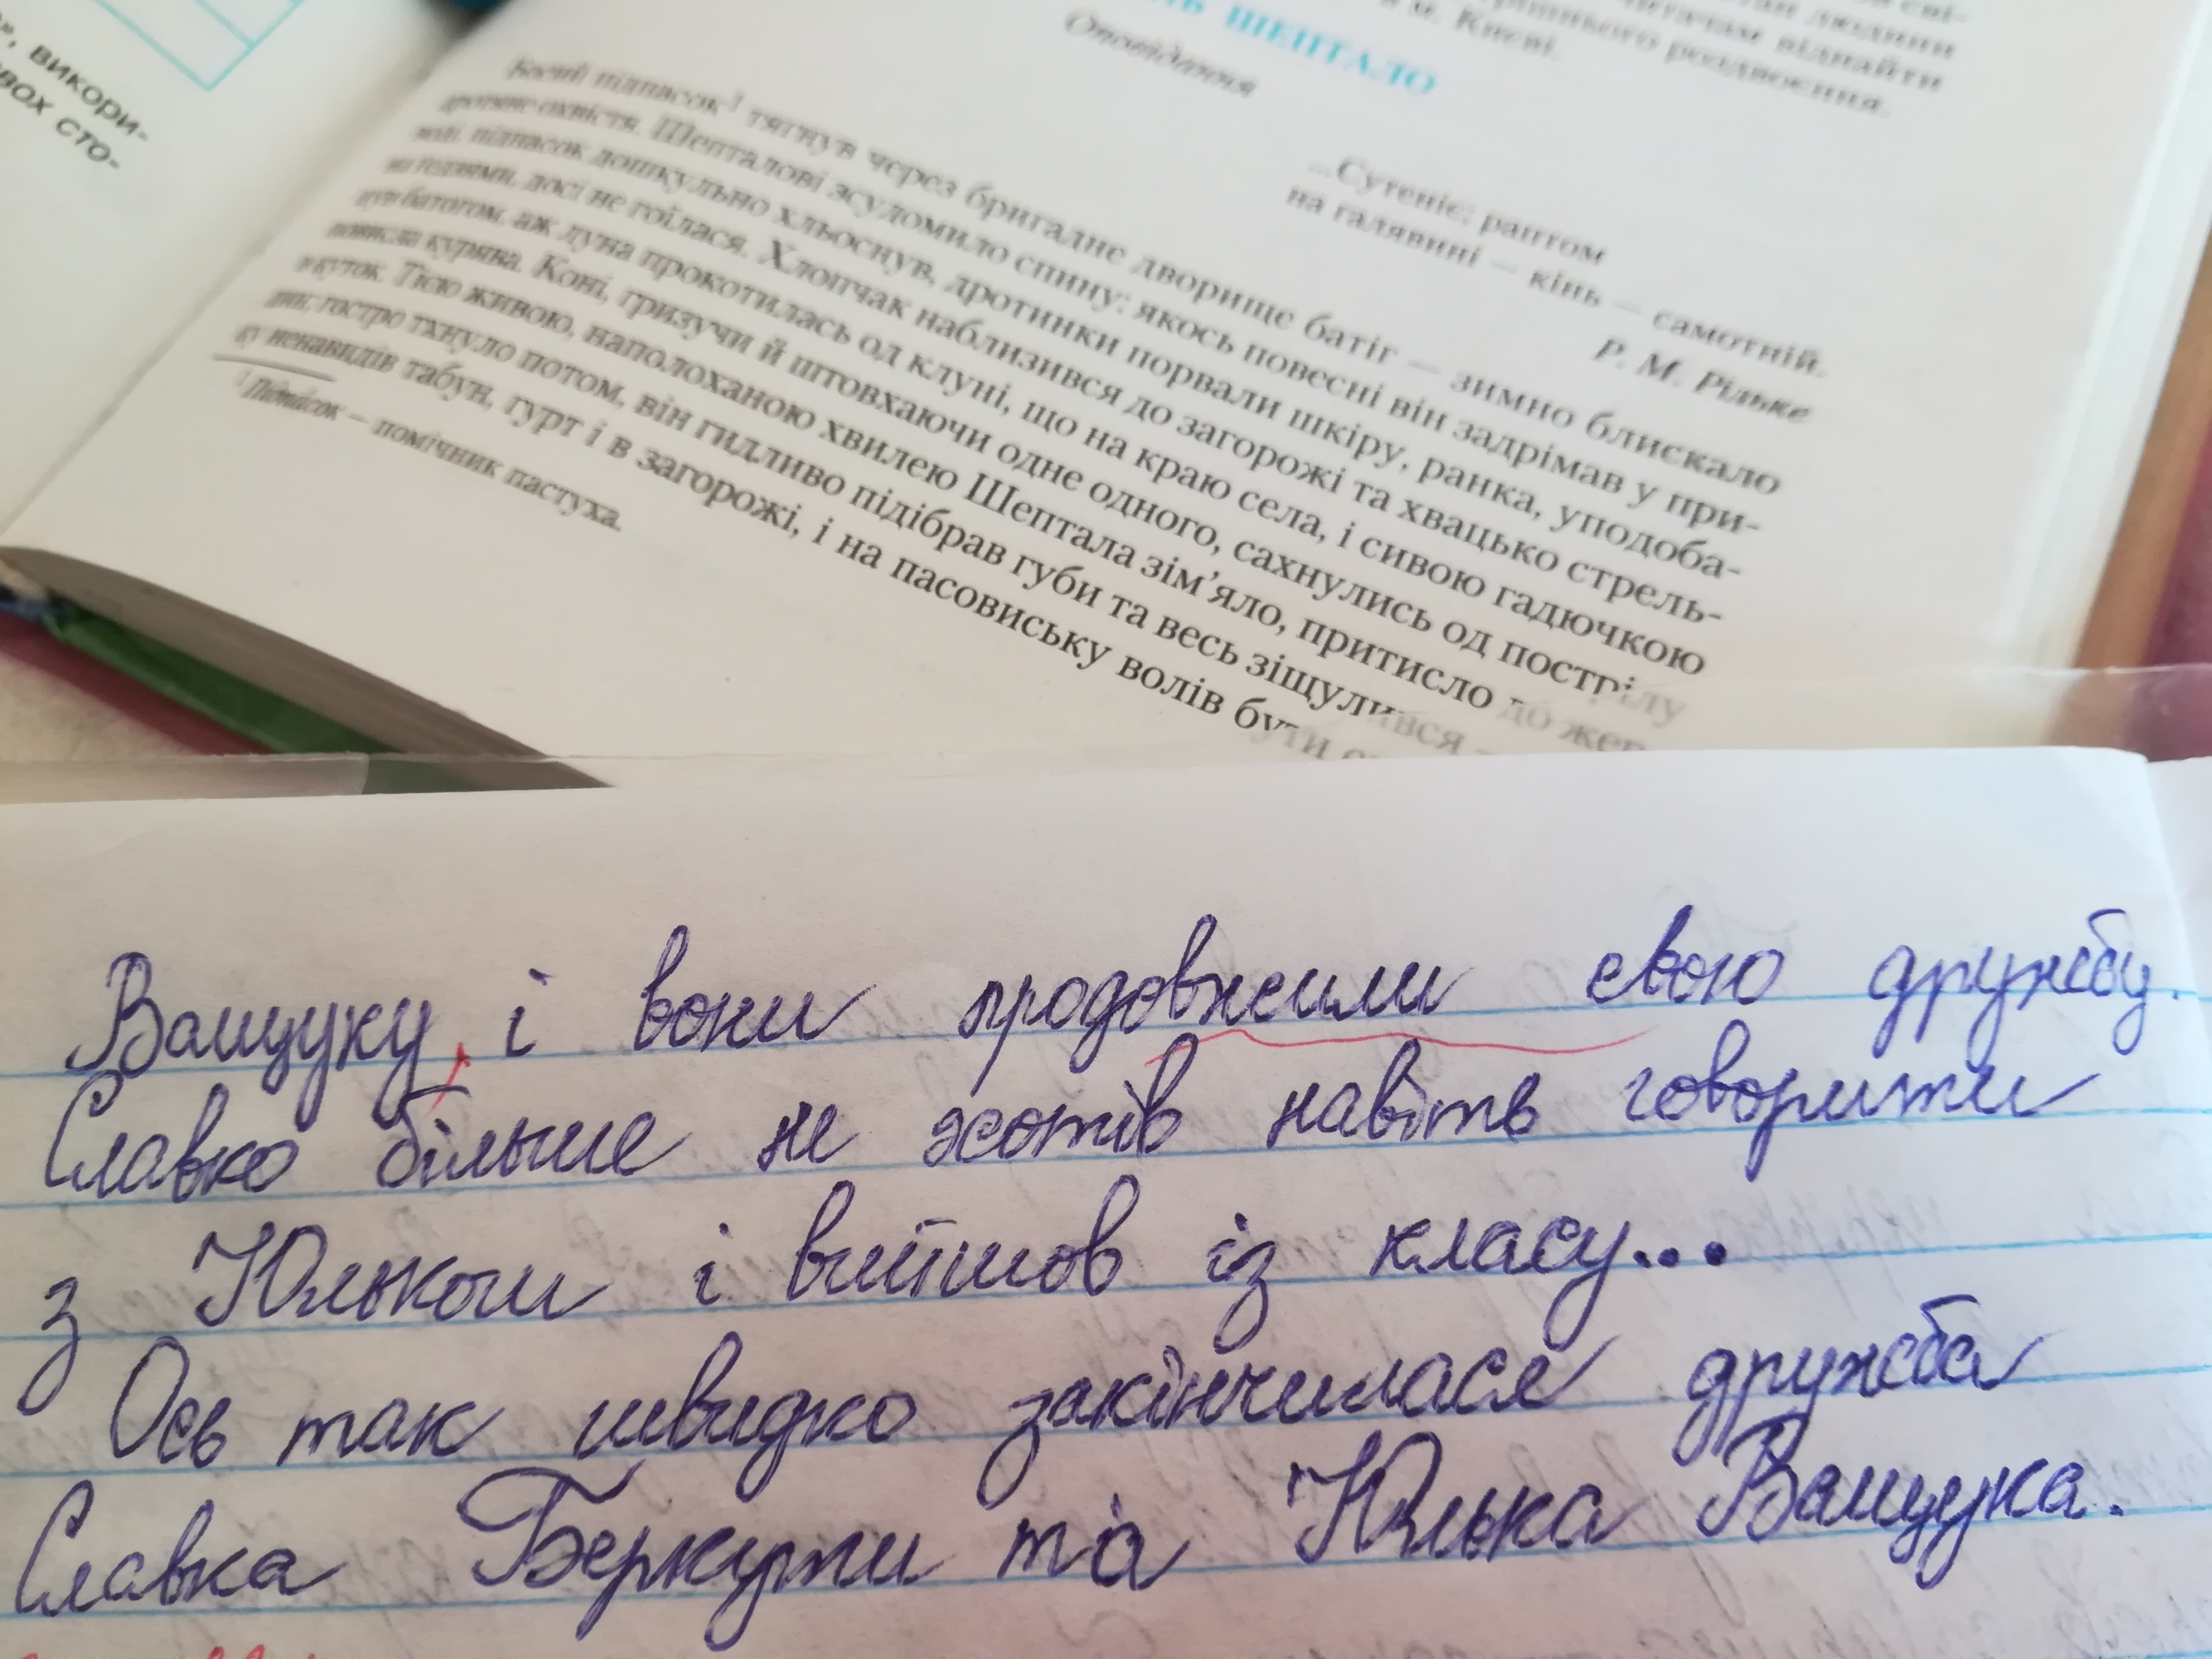 », викори-
вох сто-
людини
читачам віднайти
роздвоєння.
в м. Києві.
ШЕПТАЛО
Оповідання
...Сутеніє; раптом
на галявині — кінь — самотній.
Р. М. Рільке
Босий підпасок¹ тягнув через бригадне дворище батіг — зимно блискало
дротяне охвістя. Шепталові зсудомило спину: якось повесні він задрімав у при-
воді, підпасок дошкульно хльоснув, дротинки порвали шкіру, ранка, уподоба-
на ґедзями, досі не гоїлася. Хлопчак наблизився до загорожі та хвацько стрель-
нув батогом, аж луна прокотилась од клуні, що на краю села, і сивою гадючкою
повисла курява. Коні, гризучи й штовхаючи одне одного, сахнулись од пострілу
в куток. Тією живою, наполоханою хвилею Шептала зім’яло, притисло до жер-
дин; гостро тхнуло потом, він гидливо підібрав губи та весь зіщулився —
ку ненавидів табун, гурт і в загорожі, і на пасовиську волів бути
¹ Підпасок — помічник пастуха.
Ващуку, і вони продовжили свою дружбу.
Славко більше не хотів навіть говорити
з Юльком і вийшов із класу...
Ось так швидко закінчилася дружба
Славка Беркути та Юлька Ващука.